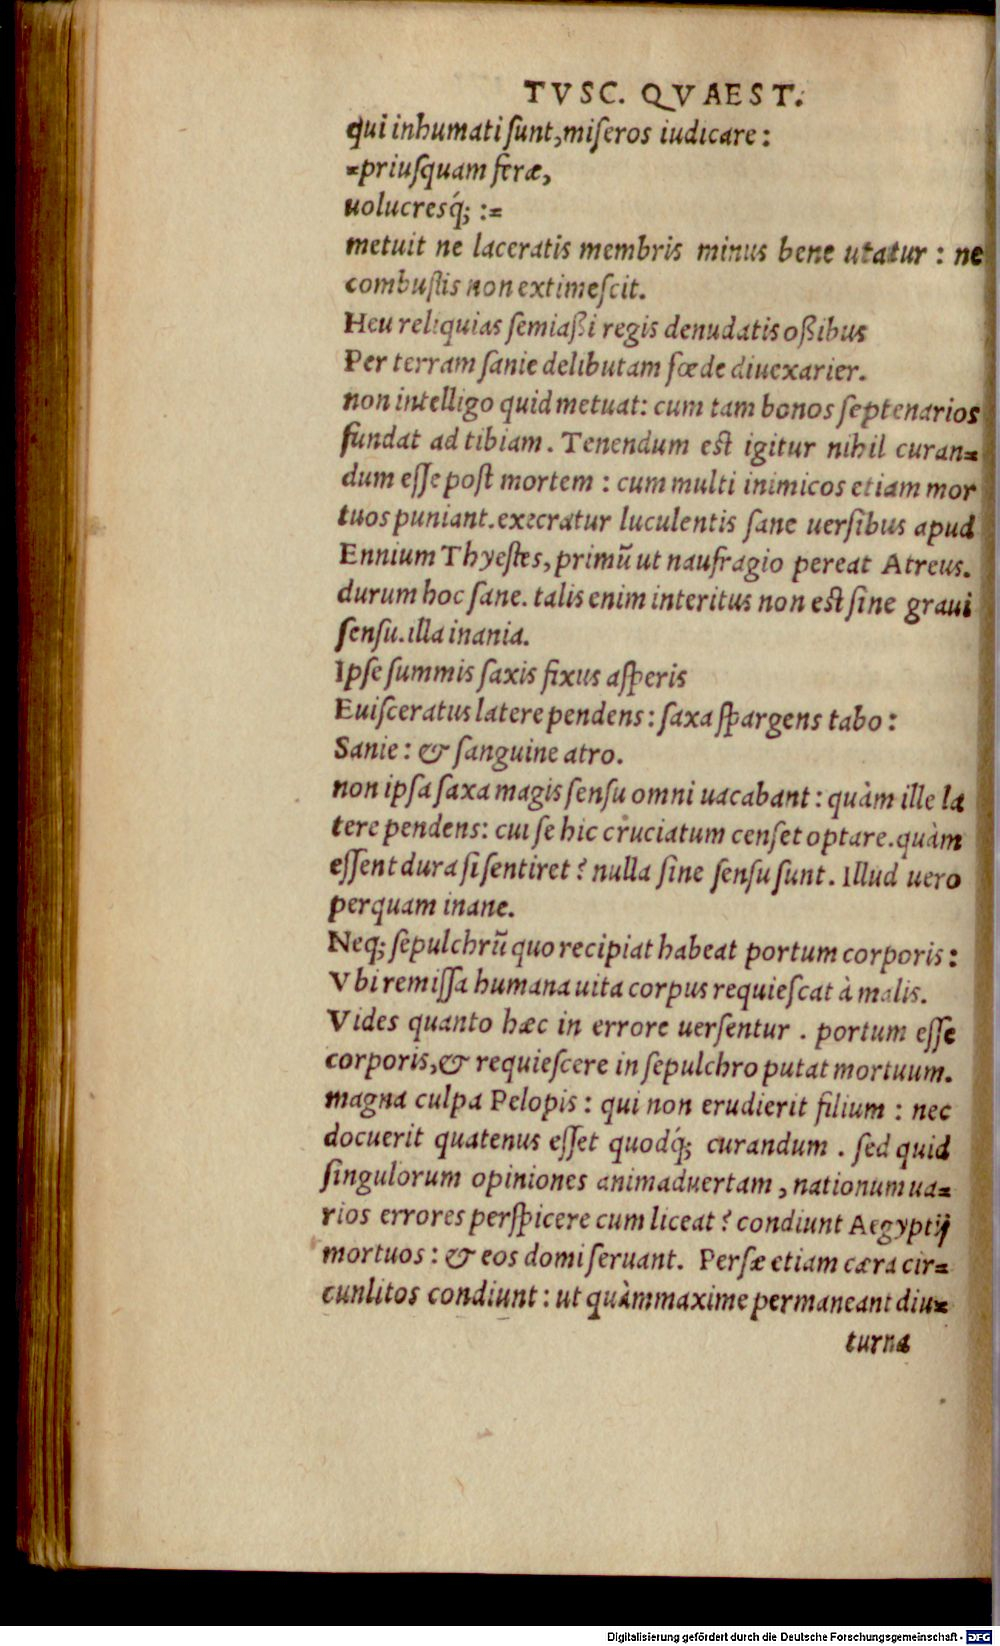 TVSC. QVAEST.
qui inhumati sunt, miseros iudicare:
=priusquam feræ,
uolucresq́; :=
metuit ne laceratis membris minus bene utatur: ne
combustis non extimescit.
Heu reliquias semiaßi regis denudatis oßibus
Per terram sanie delibutam fœde diuexarier.
non intelligo quid metuat: cum tam bonos septenarios
fundat ad tibiam. Tenendum est igitur nihil curan=
dum esse post mortem: cum multi inimicos etiam mor
tuos puniant. execratur luculentis sane uersibus apud
Ennium Thyestes, primũ ut naufragio pereat Atreus.
durum hoc sane. talis enim interitus non est sine graui
sensu. illa inania.
Ipse summis saxis fixus asperis
Euisceratus latere pendens: saxa spargens tabo:
Sanie: & sanguine atro.
non ipsa saxa magis sensu omni uacabant: quàm ille la
tere pendens: cui se hic cruciatum censet optare. quàm
essent dura si sentiret? nulla sine sensu sunt. Illud uero
perquam inane.
Neq; sepulchrũ quo recipiat habeat portum corporis:
Vbi remissa humana uita corpus requiescat à malis.
Vides quanto hæc in errore uersentur. portum esse
corporis, & requiescere in sepulchro putat mortuum.
magna culpa Pelopis: qui non erudierit filium: nec
docuerit quatenus esset quodq́; curandum. sed quid
singulorum opiniones animaduertam, nationum ua=
rios errores perspicere cum liceat? condiunt Aegyptij
mortuos: & eos domi seruant. Persæ etiam cæra cir=
cunlitos condiunt: ut quàmmaxime permaneant diu=
turna
Digitalisierung gefördert durch die Deutsche Forschungsgemeinschaft - DFG